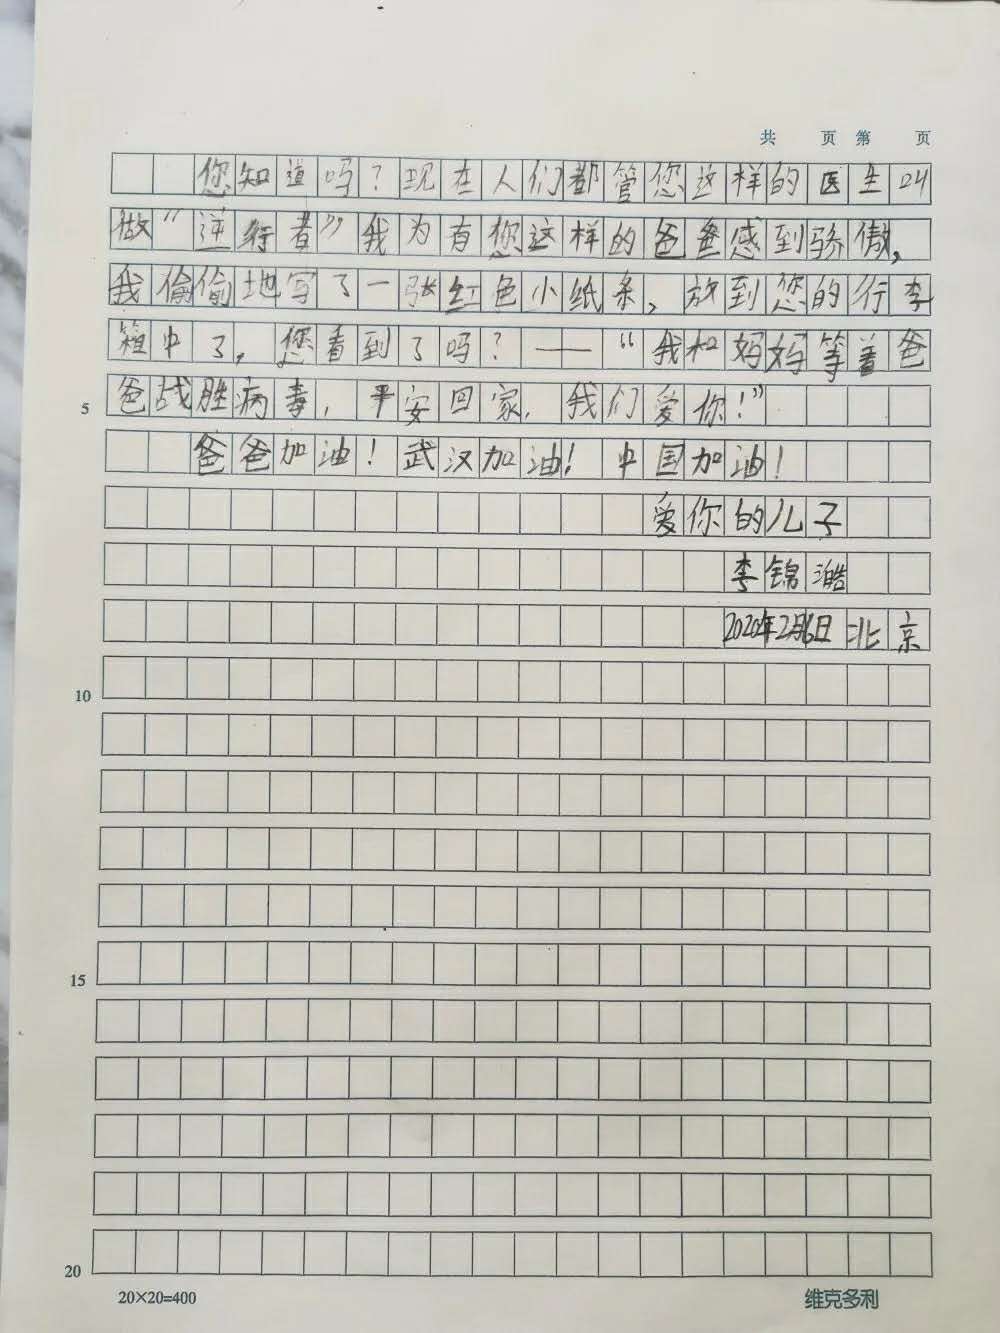 共 页 第 页
您知道吗？现在人们都管您这样的医生叫
做“逆行者”我为有您这样的爸爸感到骄傲，
我偷偷地写了一张红色小纸条，放到您的行李
箱中了，您看到了吗？——“我和妈妈等着爸
5 爸战胜病毒，平安回家，我们爱你！”
爸爸加油！武汉加油！中国加油！
爱你的儿子
李锦澔
2020年2月6日北京
10
15
20
20×20=400 维克多利